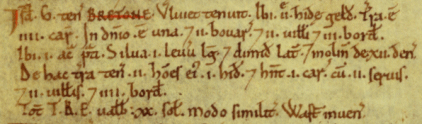 Isd. G. ten' BRETONE. Vluiet tenuit. Ibi. ii. hidę geld'. Tra. ē
iiii. car'. In dnio. ē una. 7 ii. bouar'. 7 ii. uilli 7 iii. bord'.
Ibi. i. ac' pti. Silua. i. leuu lg. 7 dimid lat'. 7 molin' de. xii. den'.
De hac tra ten'. ii. hoes ei'. i. hid'. 7 hnt. i. car'. cu. ii. seruis.
7 ii. uillis. 7 iiii. bord'.
Tot' T.R.E. ualb'. xx. sol'. modo similit'. Wast' inuen'.